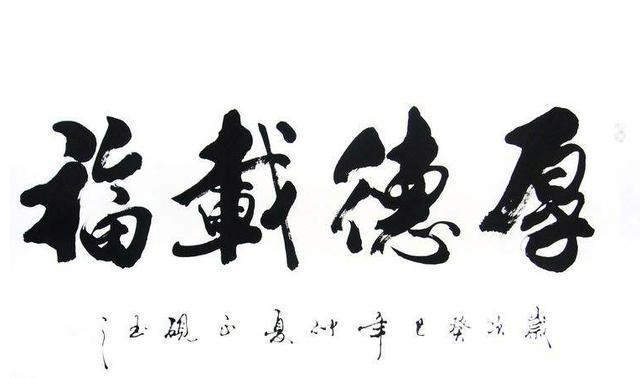 厚德載福
歲次癸巳年仲夏正硯玉